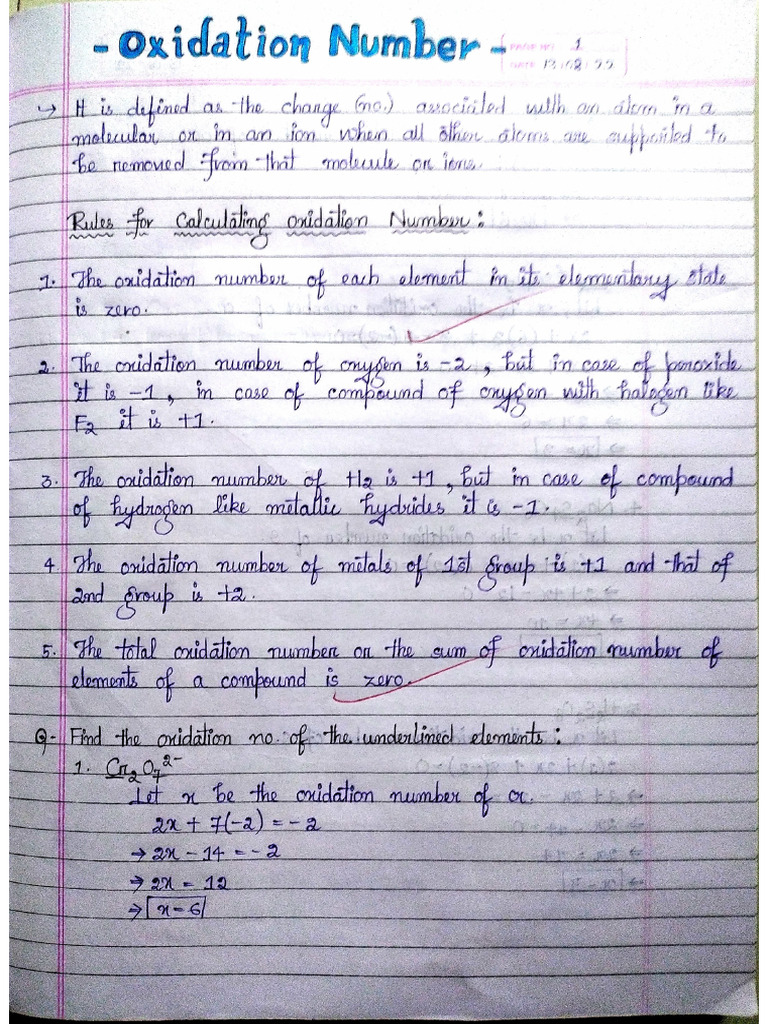 - Oxidation Number -
PAGE NO. 1
DATE 13/08/22
↳ It is defined as the change (no.) associated with an atom in a
molecular or in an ion when all other atoms are supported to
be removed from that molecule or ions.
Rules for Calculating oxidation Number:
1. The oxidation number of each element in its elementary state
is zero.
2. The oxidation number of oxygen is -2, but in case of peroxide
it is -1, in case of compound of oxygen with halogen like
F2 it is +1.
3. The oxidation number of H2 is +1, but in case of compound
of hydrogen like metallic hydrides it is -1.
4. The oxidation number of metals of 1st group is +1 and that of
2nd group is +2.
5. The total oxidation number or the sum of oxidation number of
elements of a compound is zero.
Q- Find the oxidation no. of the underlined elements:
1. Cr₂O₇²⁻
Let x be the oxidation number of cr.
2x + 7(-2) = -2
→ 2x - 14 = -2
→ 2x = 12
→ x - 6